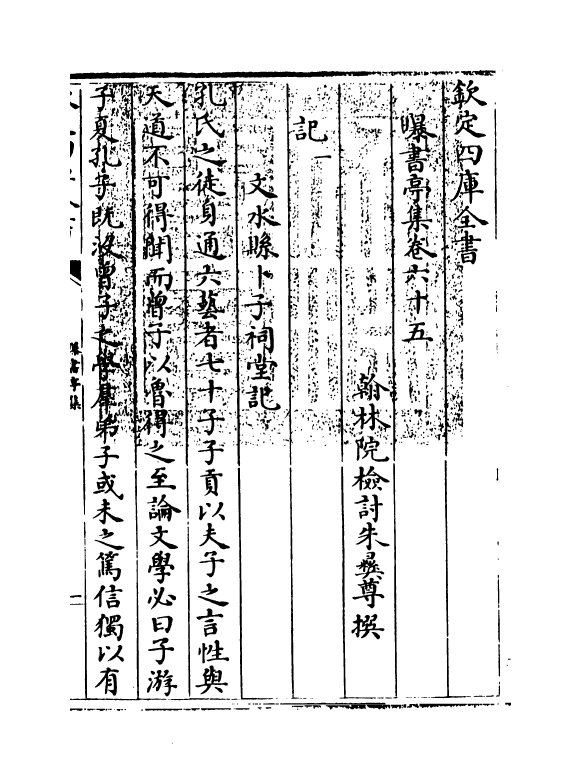 欽定四庫全書
曝書亭集卷六十五
翰林院檢討朱彞尊撰
記一
文水縣卜子祠堂記
孔氏之徒身通六藝者七十子子貢以夫子之言性與
天道不可得聞而曾子以魯得之至論文學必曰子游
子夏孔子既沒曾子之學羣弟子或未之篤信獨以有
曝書亭集
一